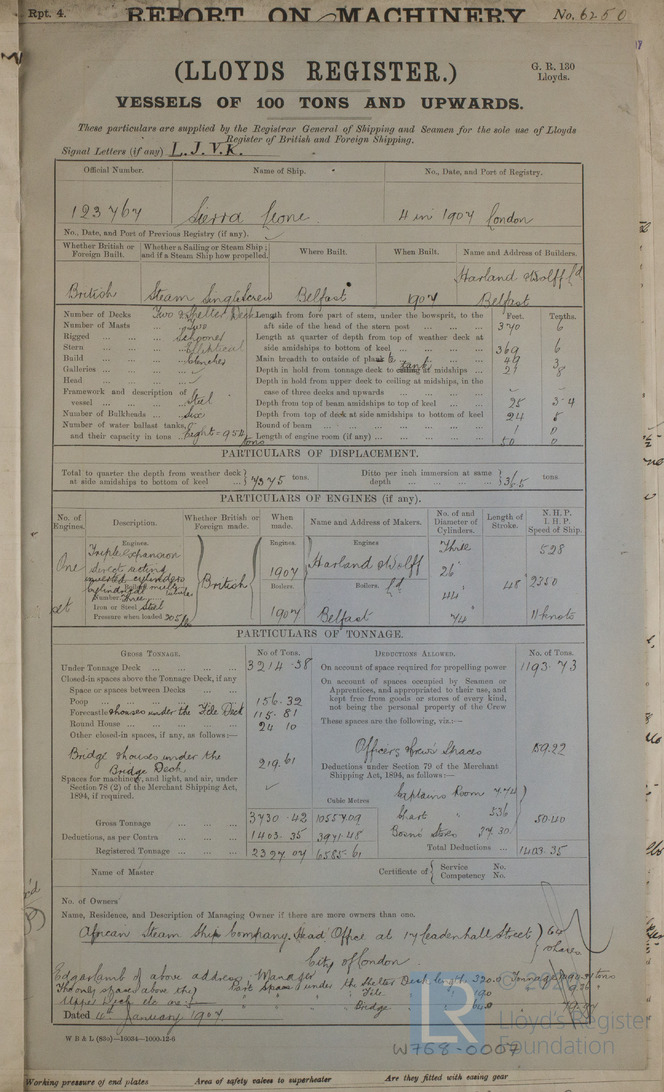 Rpt. 4.
REPORT ON MACHINERY
No. 6250
(LLOYDS REGISTER.)
G. R. 130
Lloyds.
VESSELS OF 100 TONS AND UPWARDS.
These particulars are supplied by the Registrar General of Shipping and Seamen for the sole use of Lloyds
Register of British and Foreign Shipping.
Signal Letters (if any) L. J. V. K.
Official Number. Name of Ship. No., Date, and Port of Registry.
123767 Sierra Leone 4 in 1907 London
No., Date, and Port of Previous Registry (if any).
Whether British or Foreign Built. Whether a Sailing or Steam Ship; and if a Steam Ship how propelled. Where Built. When Built. Name and Address of Builders.
British Steam Single Screw Belfast 1907 Harland & Wolff Ld Belfast
Number of Decks Two & Shelter Deck
Number of Masts Two
Rigged Schooner
Stern Elliptical
Build Clencher
Galleries
Head
Framework and description of vessel Steel
Number of Bulkheads Six
Number of water ballast tanks, and their capacity in tons Eight = 954 tons
Feet. Tenths.
Length from fore part of stem, under the bowsprit, to the aft side of the head of the stern post 370 6
Length at quarter of depth from top of weather deck at side amidships to bottom of keel 369 6
Main breadth to outside of plank 49 3
Depth in hold from tonnage deck to ceiling tank at midships 21 8
Depth in hold from upper deck to ceiling at midships, in the case of three decks and upwards
Depth from top of beam amidships to top of keel 25
Depth from top of deck at side amidships to bottom of keel 24 5
Round of beam 1 0
Length of engine room (if any) 50 0
PARTICULARS OF DISPLACEMENT.
Total to quarter the depth from weather deck at side amidships to bottom of keel 7375 tons.
Ditto per inch immersion at same depth 36.5 tons
PARTICULARS OF ENGINES (if any).
No. of Engines. Description. Whether British or Foreign made. When made. Name and Address of Makers. No. of and Diameter of Cylinders. Length of Stroke. N. H. P. I. H. P. Speed of Ship.
One set
Engines.
Triple expansion
direct acting
inverted cylinders
Number Three
Iron or Steel Steel
Pressure when loaded 205 lbs
British
Engines. 1907
Boilers. 1907
Engines Harland & Wolff Ld
Boilers. Belfast
Three
26"
44"
74"
48"
528
2350
11 knots
PARTICULARS OF TONNAGE.
GROSS TONNAGE. No of Tons.
Under Tonnage Deck 3214.38
Closed-in spaces above the Tonnage Deck, if any
Space or spaces between Decks
Poop 156.32
Forecastle & houses under the F'cle Deck 115.81
Round House 24 10
Other closed-in spaces, if any, as follows:—
Bridge & houses under the Bridge Deck 219.61
Spaces for machinery, and light, and air, under
Section 78 (2) of the Merchant Shipping Act,
1894, if required.
Cubic Metres
Gross Tonnage 3730.42 10557.09
Deductions, as per Contra 1403.35 3971.48
Registered Tonnage 2327.07 6585.61
DEDUCTIONS ALLOWED. No. of Tons.
On account of space required for propelling power 1193.73
On account of spaces occupied by Seamen or
Apprentices, and appropriated to their use, and
kept free from goods or stores of every kind,
not being the personal property of the Crew
These spaces are the following, viz.:—
Officers & Crew's Spaces 159.22
Deductions under Section 79 of the Merchant
Shipping Act, 1894, as follows:—
Captains Room 7.74
Chart " 5.36
Bosn's Stores 37.30
50.40
Total Deductions 1403.35
Name of Master
Certificate of Service No. Competency No.
No. of Owners
Name, Residence, and Description of Managing Owner if there are more owners than one.
African Steam Ship Company. Head Office at 17 Leadenhall Street
City of London
64 Shares
Edgar Lamb of above address, Manager
Upper Deck etc are:—
Bridge
Dated 4th January 1907
W B & L (83o)—16034—1000-12-6
© 20
LR
Lloyd's Register
Foundation
W768-0007
Working pressure of end plates
Area of safety valves to superheater
Are they fitted with easing gear